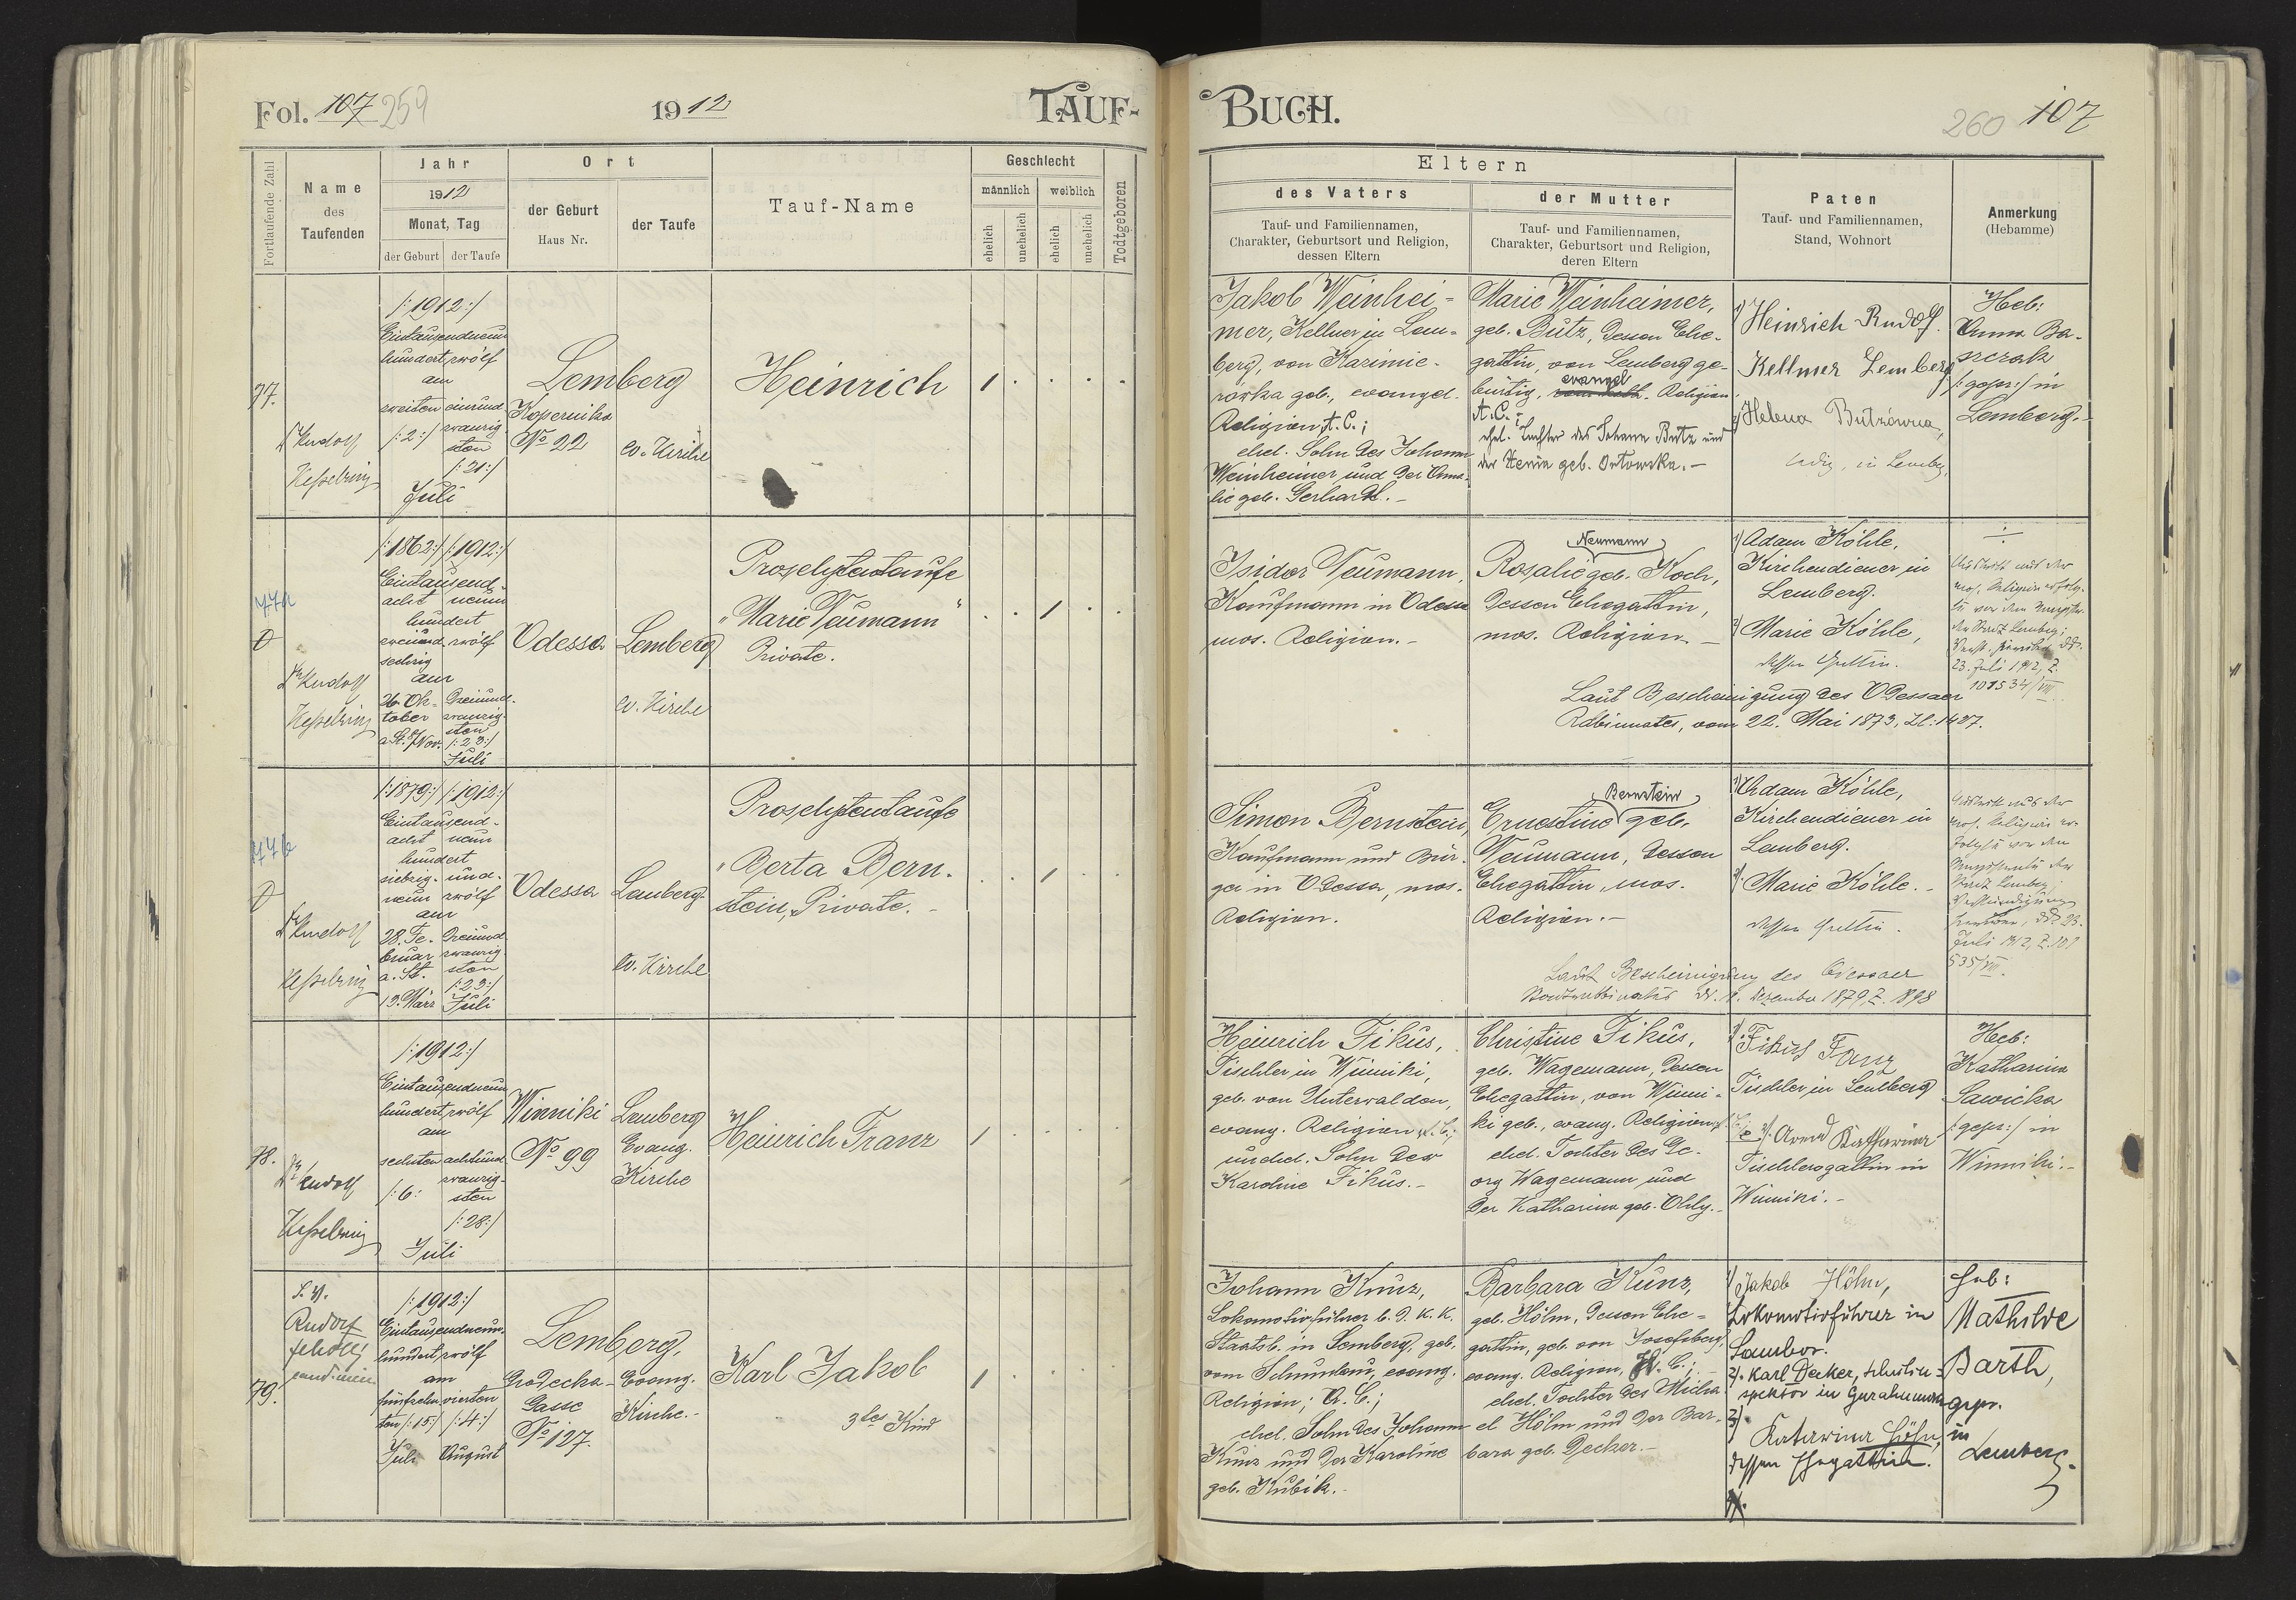 Fol. 107 259
1912
TAUF-
BUCH.
260 107
Fortlaufende Zahl
Name
des
Taufenden
Jahr
1912
Monat, Tag
der Geburt
der Taufe
Ort
der Geburt
Haus Nr.
der Taufe
Tauf-Name
Geschlecht
männlich
weiblich
ehelich
unehelich
ehelich
unehelich
Todtgeboren
Eltern
des Vaters
Tauf- und Familiennamen,
Charakter, Geburtsort und Religion,
dessen Eltern
der Mutter
Tauf- und Familiennamen,
Charakter, Geburtsort und Religion,
deren Eltern
Paten
Tauf- und Familiennamen,
Stand, Wohnort
Anmerkung
(Hebamme)
77.
Dr Rudolf
Kesselring
/:1912:/
Eintausendneun
hundert zwölf
am
zweiten
/:2:/
einund
zwanzig
sten
/:21:/
Juli
Lemberg
Kopernika
No 22
ev. Kirche
Heinrich
1
Jakob Weinhei-
mer, Kellner in Lem-
berg, von Kazimie-
rowka geb., evangel.
Religion, A.C.;
ehel. Sohn des Johann
Weinheimer und der Ama-
lie geb. Gerhardt.-
Marie Weinheimer,
geb. Butz, dessen Ehe-
gattin, von Lemberg ge-
evangel
bürtig, Religion
A.C.;
ehel. Tochter des Johann Butz und
der geb. Ortowska.-
1) Heinrich Rudolf.
Kellner Lemberg
2) Helena Butzówna,
ledig, in Lemberg,
Heb:
Anna Ba-
szczak
/:gepr:/ in
Lemberg.-
77a
Dr Rudolf
Kesselring
/:1862:/
Eintausend-
acht
hundert
zweiund
sechzig
am
26. Ok-
tober
a. St. 8/Nov.
/:1912:/
neun
zwölf
Dreiund-
zwanzig-
sten
/:23:/
Juli
Odessa
Lemberg
ev. Kirche
Proselytentaufe
"Marie Neumann"
Private.
1
Isidor Neumann,
Kaufmann in Odessa
mos. Religion.-
Neumann
Rosalie geb. Koch,
dessen Ehegattin,
mos. Religion.-
1) Adam Köhle,
Kirchendiener in
Lemberg.
2) Marie Köhle,
dessen Gattin.
Austritt aus der
mos. Religion erfolg-
te vor dem Magistra-
der Stadt Lemberg;
23. Juli 1912, Z.
101534/VII.
Laut Bescheinigung des Odessaer
Rabinates, vom 22. Mai 1873, Zl: 1427.
77b
Dr Rudolf
Kesselring
/:1879:/
Eintausend-
acht
hundert
siebzig-
neun
am
28. Fe-
bruar
a. St.
13. März
/:1912:/
neun
und-
zwölf
Dreiund
zwanzig-
sten
/:23:/
Juli
Odessa
Lemberg
Ev. Kirche
Proselytentaufe
"Berta Bern-
stein, Private.-
1
Simon Bernstein,
Kaufmann und Bür-
ger in Odessa, mos.
Religion.
Bernstein
Ernestine geb.
Neumann, dessen
Ehegattin, mos.
Religion.-
1) Adam Köhle,
Kirchendiener in
Lemberg.
2) Marie Köhle.-
dessen Gattin.
Austritt aus der
mos. Religion er-
folgte vor dem
Magistrate der
Stadt Lemberg;
Verständigung
23.
Juli 1912, Z. 101
535/VII.
Laut Bescheinigung des Odessaer
Stadtrabbinates dd. 8. Dezember 1879, Z. 1898
78.
Dr Rudolf
Kesselring
/:1912:/
Eintausendneun
hundert zwölf
am
sechsten
/:6:
achtund
zwanzig-
sten
/:28:/
Juli
Winniki
No 99
Lemberg
Evang.
Kirche
Heinrich Franz
1
Heinrich Fikus,
Tischler in Winniki,
geb. von Unterwalden,
evang. Religion A.C.;
unehel. Sohn der
Karoline Fikus.-
Christine Fikus,
geb. Wagemann, dessen
Ehegattin, von Winni-
ki geb., evang. Religion
ehel. Tochter des Ge-
org Wagemann und
der Katharina geb. Ohly.-
1) Fikus Franz
Tischler in Lemberg
2) Arend Katharina
Tischlersgattin in
Winniki.-
Heb:
Katharina
Sawicka
/:gepr:/ in
Winniki.-
79.
Rudolf
/:1912:/
Eintausendneun-
hundert zwölf
am
fünfzehn-
ten /:15:/
Juli
vierten
/:4:/
August
Lemberg,
Grodecka-
Gasse
No 127.
Evang.
Kirche.-
Karl Jakob
3tes Kind
1
Johann Kunz,
Lokomotivführer b. d. K. K.
Staatsb. in Lemberg, geb.
vom Schumlau, evang.
Religion; A.C.;
ehel. Sohn des Johann
Kunz und der Karoline
geb. Kubik.-
Barbara Kunz,
geb. Höhn, dessen Ehe-
gattin, geb. von Josefsberg,
evang. Religion, H.C.;
ehel. Tochter des Micha-
el Höhn und der Bar-
bara geb. Decker.-
1) Jakob Höhn,
Lokomotivführer in
Sambor.
2). Karl Decker, Schulin-
spektor in Gurahumora
3).
Katarina Höhn,
dessen Ehegattin.
Heb:
Mathilde
Barth,
gepr.
in
Lemberg.